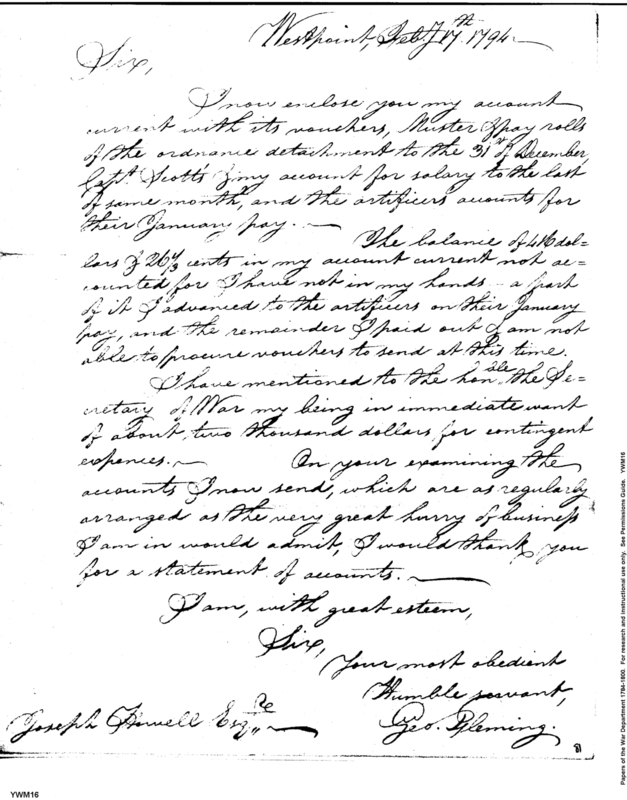 Westpoint, Feby. 17th. 1794.
Sir,
I now enclose you my account
current with its vouchers, Muster & pay rolls
of the ordnance detachment to the 31st of December,
Capt. Scott's & my account for salary to the last
of same month, and the artificers accounts for
their January pay.
The balance of 416 dol=
lars & 26 1/3 cents in my account current not ac=
counted for I have not in my hands - a part
of it I advanced to the artificers on their January
pay, and the remainder I paid out I am not
able to procure vouchers to send at this time.
I have mentioned to the honble. the Se=
cretary of War my being in immediate want
of about two thousand dollars for contingent
expences. On your examining the
accounts I now send, which are as regularly
arranged as the very great hurry of business
I am in would admit, I would thank you
for a statement of accounts.
I am, with great esteem,
Sir,
Your most obedient
Humble servant,
Geo. Fleming.
Joseph Howell Esqre
Papers of the War Department 1784-1800. For research and instructional use only. See Permissions Guide. YWM16
YWM16